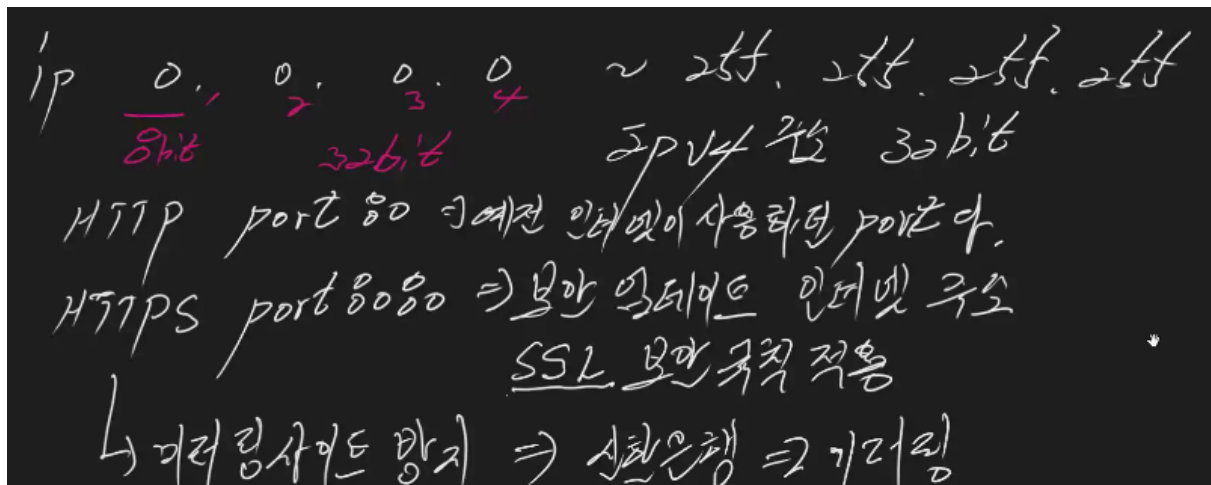 ip 0. 0. 0. 0 ~ 255. 255. 255. 255
1 2 3 4
8bit 32bit ipv4 주소 32bit
HTTP port 80 => 예전 인터넷이 사용하던 port다.
HTTPS port 8080 => 보안 업데이트 인터넷 주소
SSL 보안규칙 적용
↳ 미러링사이트 방지 => 신한은행 => 미러링